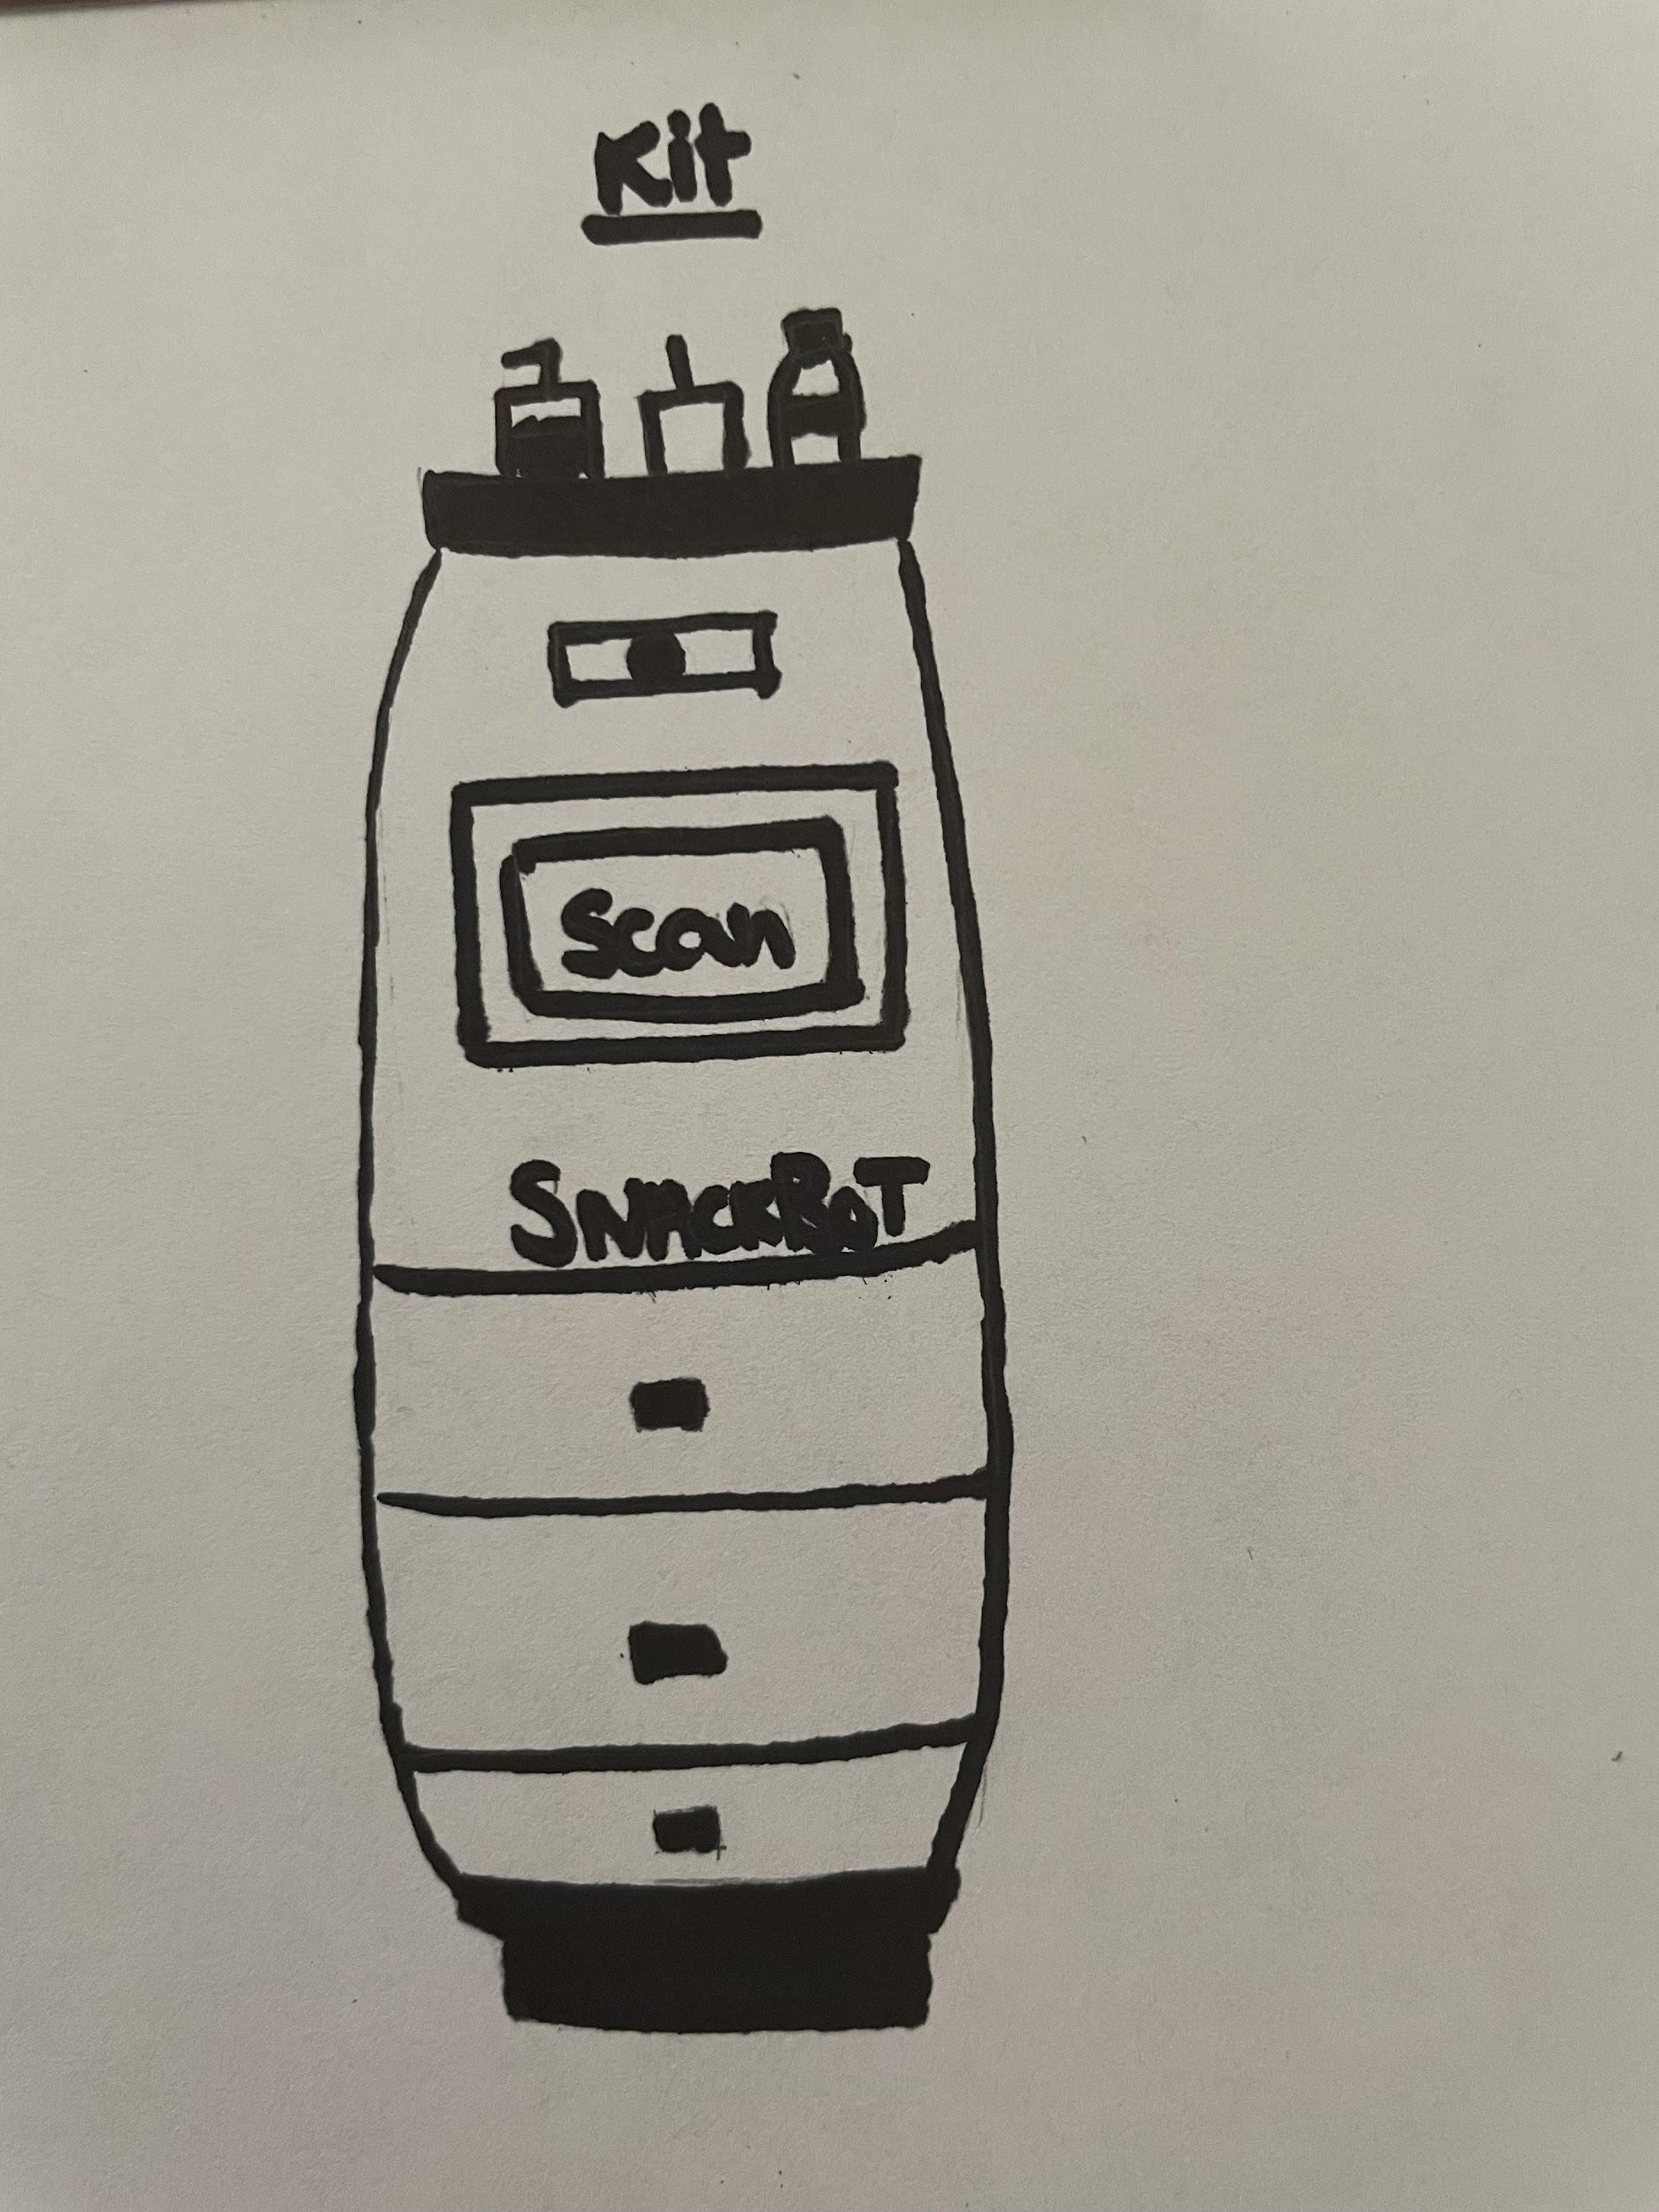 Kit
Scan
SNACKBOT